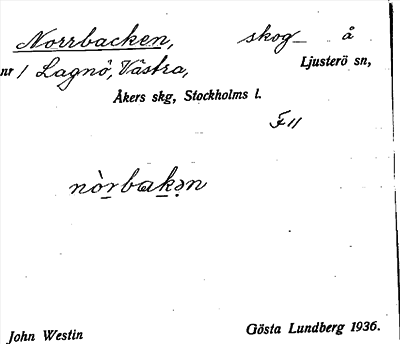 Norrbacken, skog å
nr 1 Lagnö, Västra, Ljusterö sn,
Åkers skg, Stockholms l.
F11
nòrbakən
John Westin Gösta Lundberg 1936.